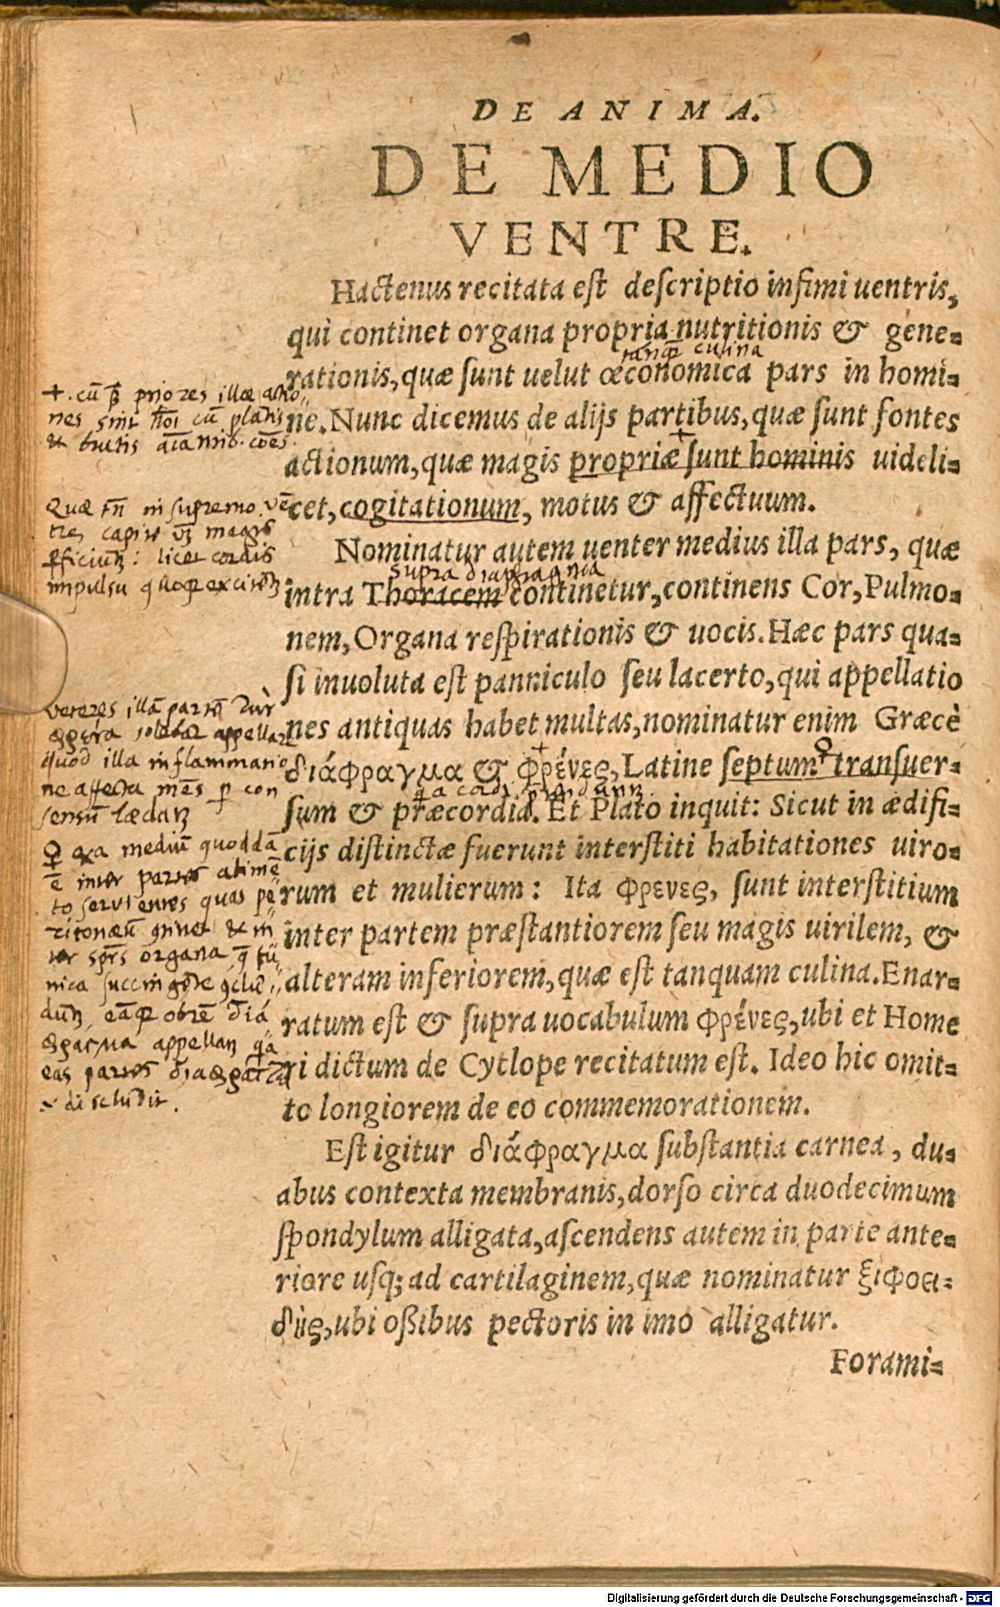 DE ANIMA.
DE MEDIO
VENTRE.
Hactenus recitata est descriptio infimi uentris,
qui continet organa propria nutritionis & gene=
culina
rationis, quæ sunt uelut œconomica pars in homi=
ne. Nunc dicemus de alijs partibus, quæ sunt fontes
actionum, quæ magis propriæ sunt hominis uideli=
cet, cogitationum, motus & affectuum.
Nominatur autem uenter medius illa pars, quæ
supra
intra Thoracem continetur, continens Cor, Pulmo=
nem, Organa respirationis & uocis. Hæc pars qua=
si inuoluta est panniculo seu lacerto, qui appellatio
nes antiquas habet multas, nominatur enim Græcè
διάφραγμα & φρένες, Latine septum transuer=
sum & præcordia. Et Plato inquit: Sicut in ædifi=
cijs distinctæ fuerunt interstiti habitationes uiro=
rum et mulierum: Ita φρενες, sunt interstitium
inter partem præstantiorem seu magis uirilem, &
alteram inferiorem, quæ est tanquam culina. Enar=
ratum est & supra uocabulum φρένες, ubi et Home
ri dictum de Cyclope recitatum est. Ideo hic omit=
to longiorem de eo commemorationem.
Est igitur διάφραγμα substantia carnea, du=
abus contexta membranis, dorso circa duodecimum
spondylum alligata, ascendens autem in parte ante=
riore usq; ad cartilaginem, quæ nominatur ξιφοει=
δὴς, ubi oßibus pectoris in imo alligatur.
Forami=
+ cū priores illæ
nes sint cū plantis
& brutis
Quæ in supremo
magis
licet cordis
impulsu
veteres illā
appellar
quod illa inflammatio
ne affecta con
sensū
mediū quoddā
inter partes
to servientes quas pe
ritonæū & in
ter organa
nica
appellant
eas partes
Digitalisierung gefördert durch die Deutsche Forschungsgemeinschaft - DFG